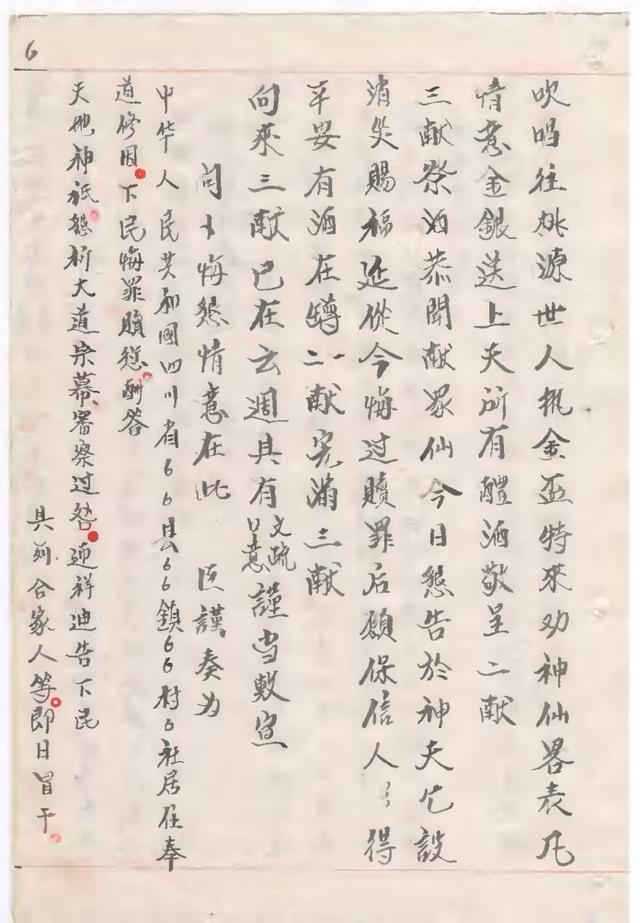 6
吹唱往桃源世人执金盃特來劝神仙畧表凡
情意金銀送上天所有醴酒敬呈二献
三献祭酒恭聞献眾仙今日懇告於神天乞設
消灾赐福延從今悔过贖罪后願保信人得
平安有酒在罇二献完满三献
向來三献已在云週具有文疏意謹当敷宣
悔懇情意在此 臣謹奏为
中华人民共和國四川省66县66鎮66村6社居住奉
道修因下民悔罪贖愆酬答
天地神祇懇祈大道宗幕畧察过咎迎祥迪告下民
具列合家人等即日冒干